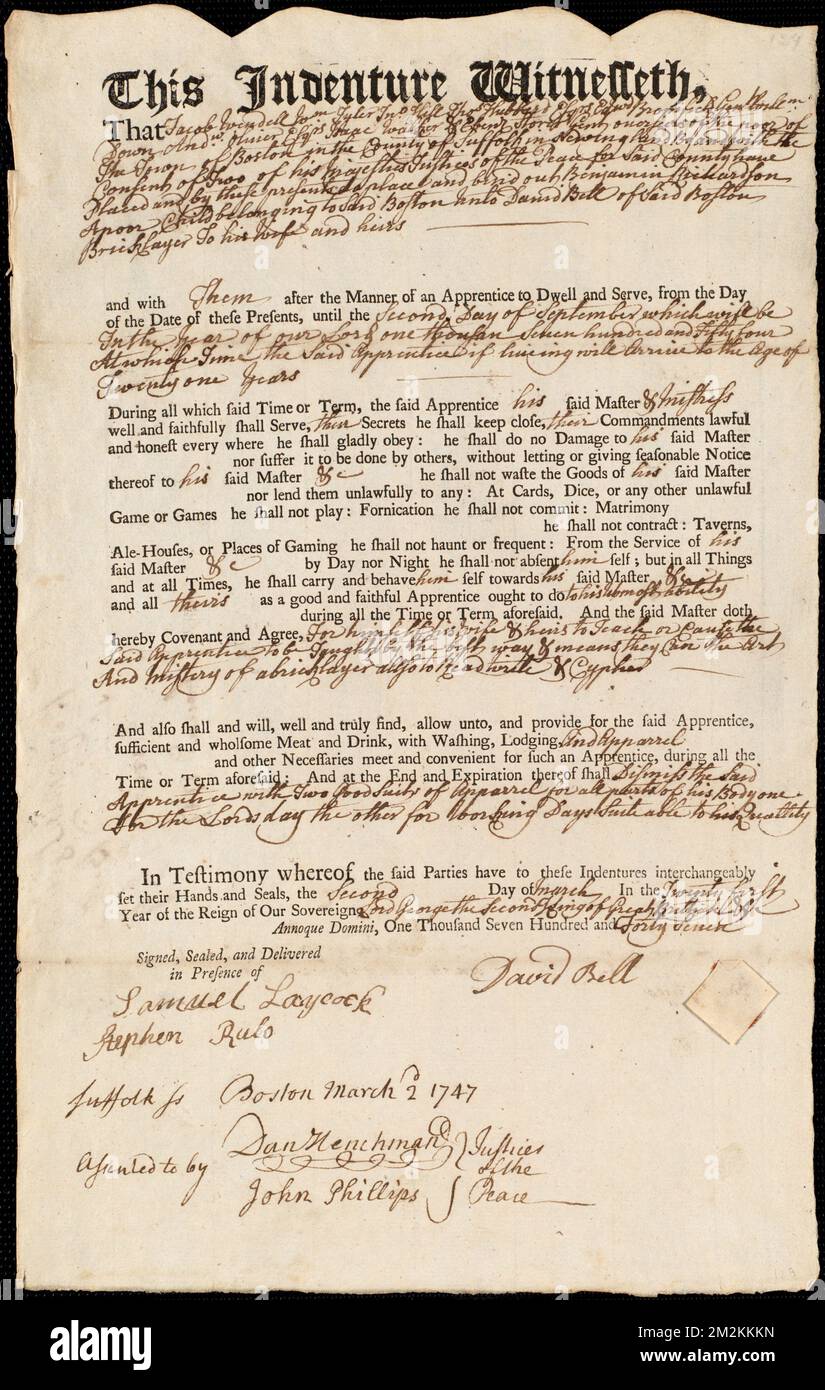 This Indenture Witnesseth,
That Jacob Wendell Tyler
Isaac Walker & Storer Gent. overseers of the Poor of
the Town of Boston in the County of Suffolk in New England with the
Consent of Two of his Majesties Justices of the Peace for Said County have
Placed and by these presents do place and bind out Benjamin Richardson
A poor Child belonging to Said Boston unto David Bell of Said Boston
Bricklayer To his Wife and heirs
and with Them after the Manner of an Apprentice to Dwell and Serve, from the Day
of the Date of these Presents, until the Second Day of September which will be
In the Year of our Lord one thousan Seven hundred and fifty four
At which Time the Said Apprentice if liveing will Arrive to the Age of
Twenty one Years
During all which said Time or Term, the said Apprentice his said Master & Mistress
well and faithfully shall Serve, their Secrets he shall keep close, their Commandments lawful
and honest every where he shall gladly obey: he shall do no Damage to his said Master
nor suffer it to be done by others, without letting or giving seasonable Notice
thereof to his said Master &c he shall not waste the Goods of his said Master
nor lend them unlawfully to any: At Cards, Dice, or any other unlawful
Game or Games he shall not play: Fornication he shall not commit: Matrimony
he shall not contract: Taverns,
Ale-Houses, or Places of Gaming he shall not haunt or frequent: From the Service of his
said Master &c by Day nor Night he shall not absent him self; but in all Things
and at all Times, he shall carry and behave him self towards his said Master &c
and all theirs as a good and faithful Apprentice ought to do to his utmost ability
during all the Time or Term aforesaid. And the said Master doth
hereby Covenant and Agree, For himself his wife & heirs to Teach or Cause the
Said Apprentice to be Taught by the best way & means they Can the Art
And Mistery of a bricklayer allso to Read write & Cypher
And also shall and will, well and truly find, allow unto, and provide for the said Apprentice,
sufficient and wholsome Meat and Drink, with Washing, Lodging and Apparrel
and other Necessaries meet and convenient for such an Apprentice, during all the
Time or Term aforesaid: And at the End and Expiration thereof shall Dismiss the Said
Apprentice with Two Good Suits of Apparrel for all parts of his Body one
for the Lords day the other for Working Days Suiteable to his Quallity
In Testimony whereof the said Parties have to these Indentures interchangeably
set their Hands and Seals, the Second Day of March In the Twenty first
Year of the Reign of Our Sovereign Lord George the Second King of Great &c
Annoque Domini, One Thousand Seven Hundred and Forty Seven
Signed, Sealed, and Delivered
in Presence of
David Bell
Samuel Laycock
Stephen Rulo
Suffolk ss Boston March 2d 1747
Assented to by Dan Henchman Justices
of the
John Phillips Peace
alamy
alamy
Image ID: 2M2KKKN
www.alamy.com